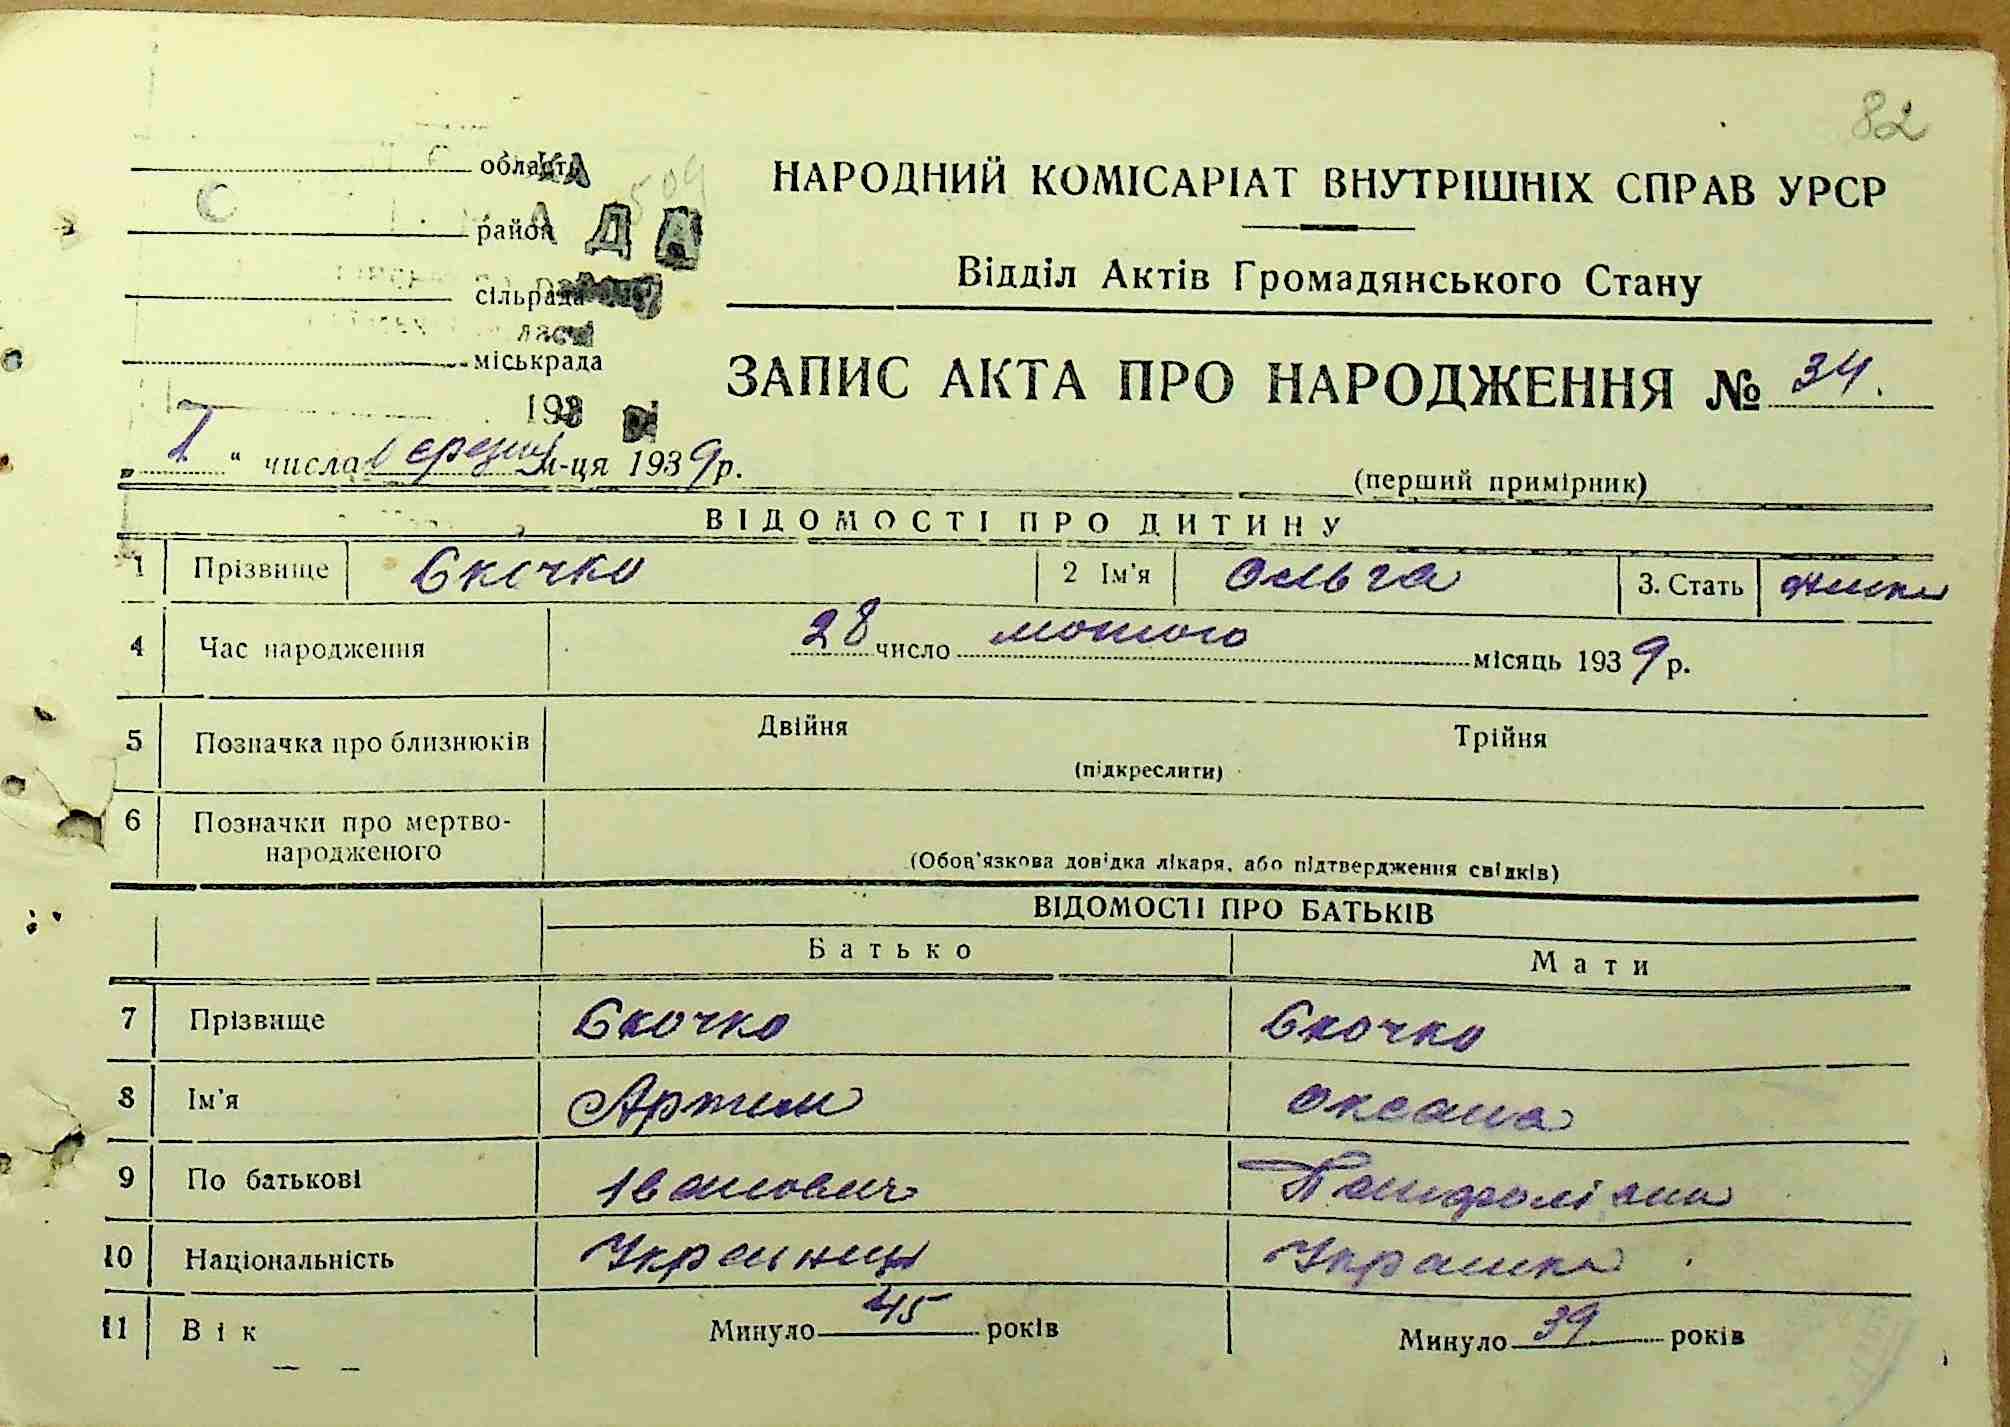 82
область
509
район
сільрада
міськрада
193
НАРОДНИЙ КОМІСАРІАТ ВНУТРІШНІХ СПРАВ УРСР
Відділ Актів Громадянського Стану
ЗАПИС АКТА ПРО НАРОДЖЕННЯ № 34.
" числа березня м-ця 1939 р.
(перший примірник)
ВІДОМОСТІ ПРО ДИТИНУ
1 Прізвище Скочко 2 Ім'я Ольга 3. Стать
4 Час народження 28 число лютого місяць 1939 р.
5 Позначка про близнюків Двійня Трійня
(підкреслити)
6 Позначки про мертво-
народженого
(Обов'язкова довідка лікаря, або підтвердження свідків)
ВІДОМОСТІ ПРО БАТЬКІВ
Батько Мати
7 Прізвище Скочко Скочко
8 Ім'я Артем Оксана
9 По батькові Іванович
10 Національність Українець Українка
11 Вік Минуло 45 років Минуло 39 років